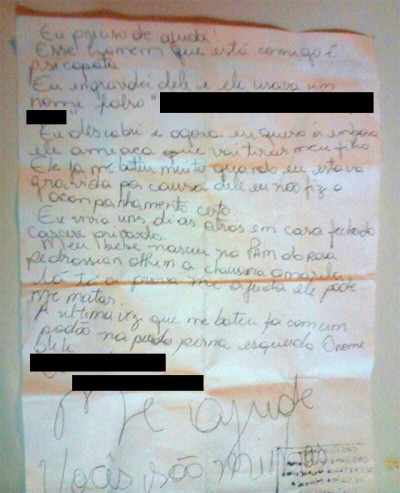 Eu preciso de ajuda!
Esse homem que está comigo é
psicopata
Eu engravidei dele e ele usava um
nome falso "
"
Eu descobri e agora eu quero ir embora
ele ameaça que vai tirar meu filho
Ele já me bateu muito quando eu estava
gravida por causa dele eu não fiz o
acompanhamento certo.
Eu vivia uns dias atros em casa fechado
carcere privado.
Meu bebe nasceu no PAM do
pedrossian olhem a amarela
lá tá a prova me ajuda ele pode
me matar.
A ultima vez que me bateu foi com um
na perna esquerda O nome
dele
Me ajude
Vocês são